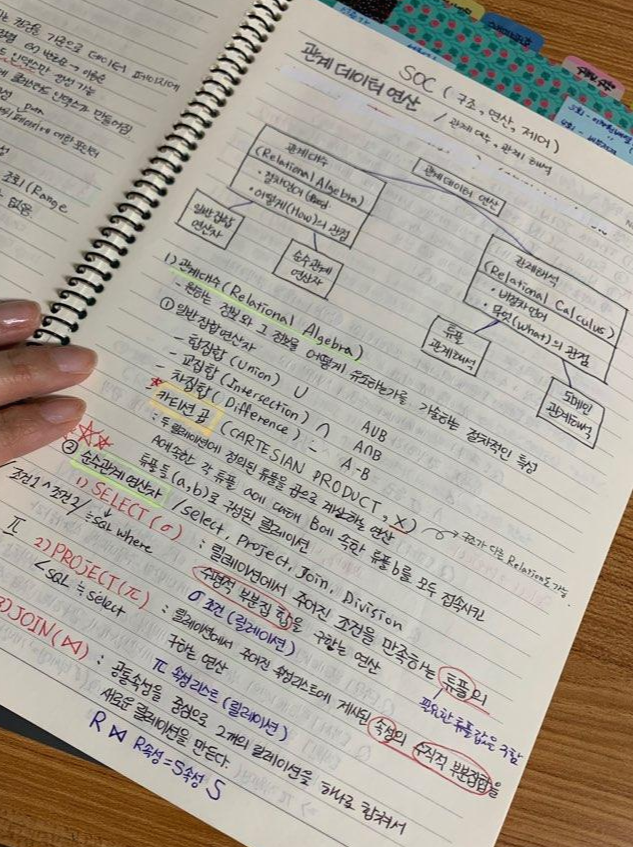 SOC (구조, 연산, 제어)
관계 데이터 연산 / 관계대수, 관계해석
관계 데이터 연산
관계대수
(Relational Algebra)
• 절차언어
• 어떻게(How)의 관점
일반집합
연산자
순수관계
연산자
관계해석
(Relational Calculus)
• 비절차언어
• 무엇(What)의 관점
튜플
관계해석
도메인
관계해석
1) 관계대수 (Relational Algebra)
- 원하는 정보와 그 정보를 어떻게 유도하는가를 기술하는 절차적인 특성
① 일반집합연산자
- 합집합 (Union) ∪ A∪B
- 교집합 (Intersection) ∩ A∩B
- 차집합 (Difference) - A-B
카티션 곱 (CARTESIAN PRODUCT, X) 구조가 다른 Relation도 가능.
: 두 릴레이션에 정의된 튜플을 곱으로 계산하는 연산
A에 속한 각 튜플 a에 대해 B에 속한 튜플 b를 모두 접속시킨
튜플들 (a, b)로 구성된 릴레이션
② 순수관계 연산자 / Select, Project, Join, Division
1) SELECT (σ) : 릴레이션에서 주어진 조건을 만족하는 튜플의
수평적 부분집합을 구하는 연산
조건1 ^ 조건2 / ≒SQL where
필요한 튜플값을 구함
σ 조건 (릴레이션)
π 2) PROJECT (π) : 릴레이션에서 주어진 속성리스트에 제시된 속성의 수직적 부분집합을
구하는 연산
< SQL ≒ select
π 속성리스트 (릴레이션)
3) JOIN (⋈) : 공통속성을 중심으로 2개의 릴레이션을 하나로 합쳐서
새로운 릴레이션을 만든다.
R ⋈ R속성 = S속성 S
조회 (Range